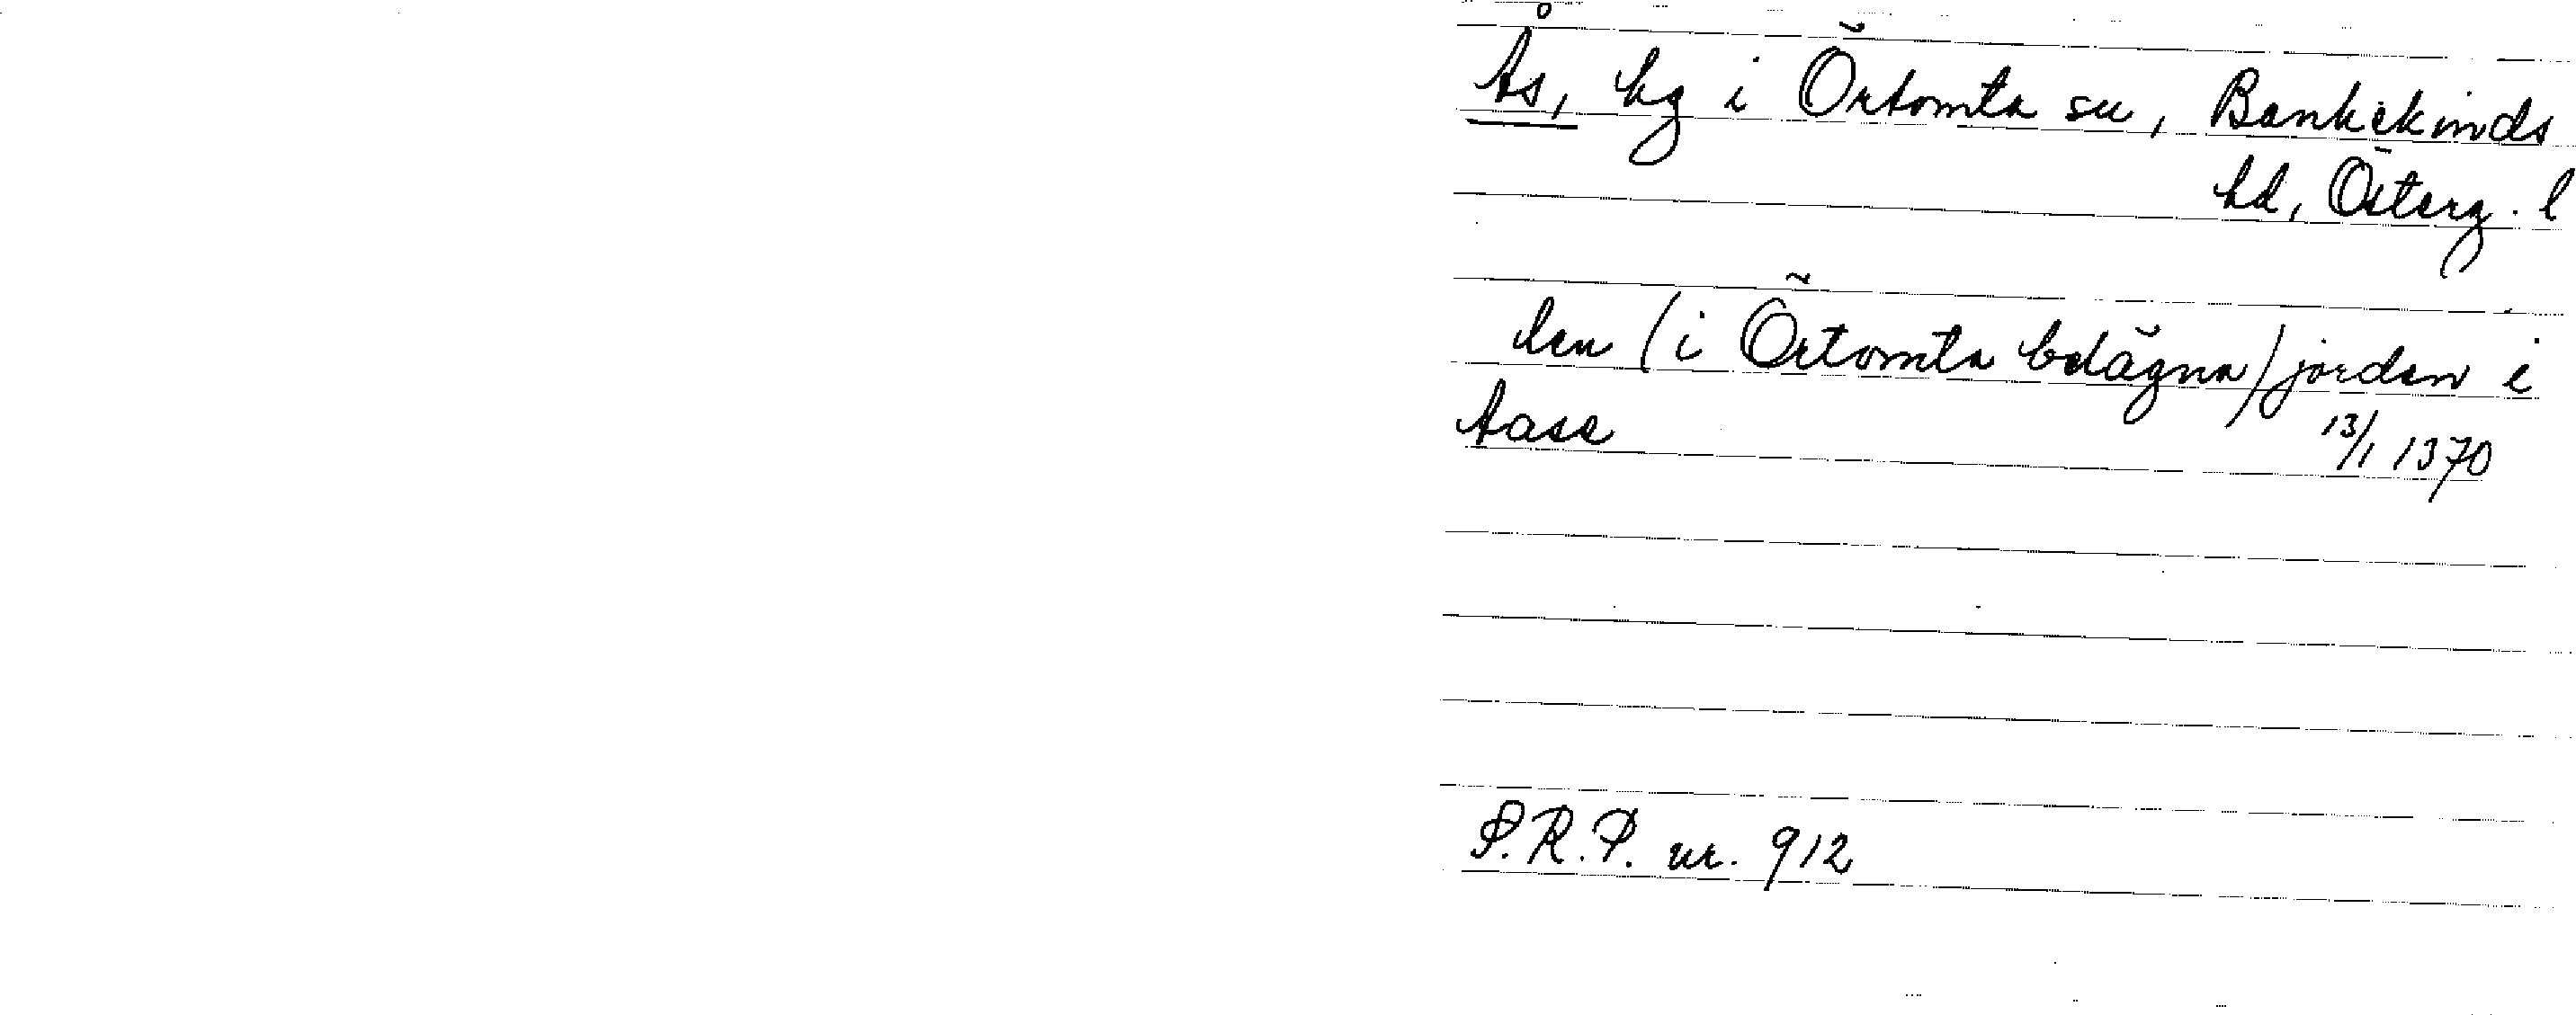 Ås, hg i Örtomta sn, Bankekinds
hd, Österg. l
den (i Örtomta belägna) jorden i
Aase 13/1 1370
S.R.P. nr. 912